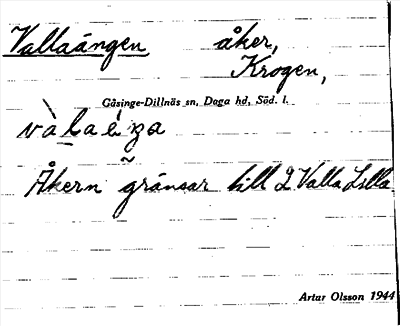 Vallaängen åker,
Krogen,
Gåsinge-Dillnäs sn, Daga hd, Söd. l.
Åkern gränsar till 2 Valla Lilla.
Artur Olsson 1944